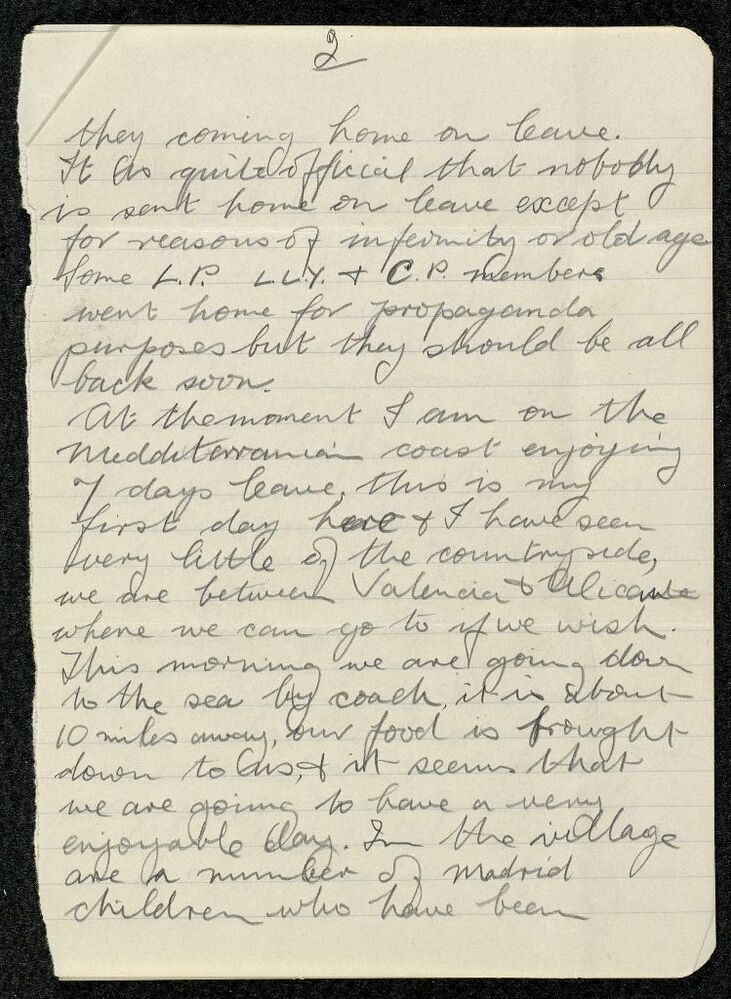 2
they coming home on leave.
It is quite official that nobody
is sent home on leave except
for reasons of infirmity or old age
Some L.P. L.L.Y. & C.P. members
went home for propaganda
purposes but they should be all
back soon.
At the moment I am on the
Medditerranian coast enjoying
7 days leave, this is my
first day here & I have seen
very little of the countryside,
we are between Valencia & Alicante
where we can go to if we wish.
This morning we are going down
to the sea by coach, it is about
10 miles away, our food is brought
down to us, & it seems that
we are going to have a very
enjoyable day. In the village
are a number of Madrid
children who have been